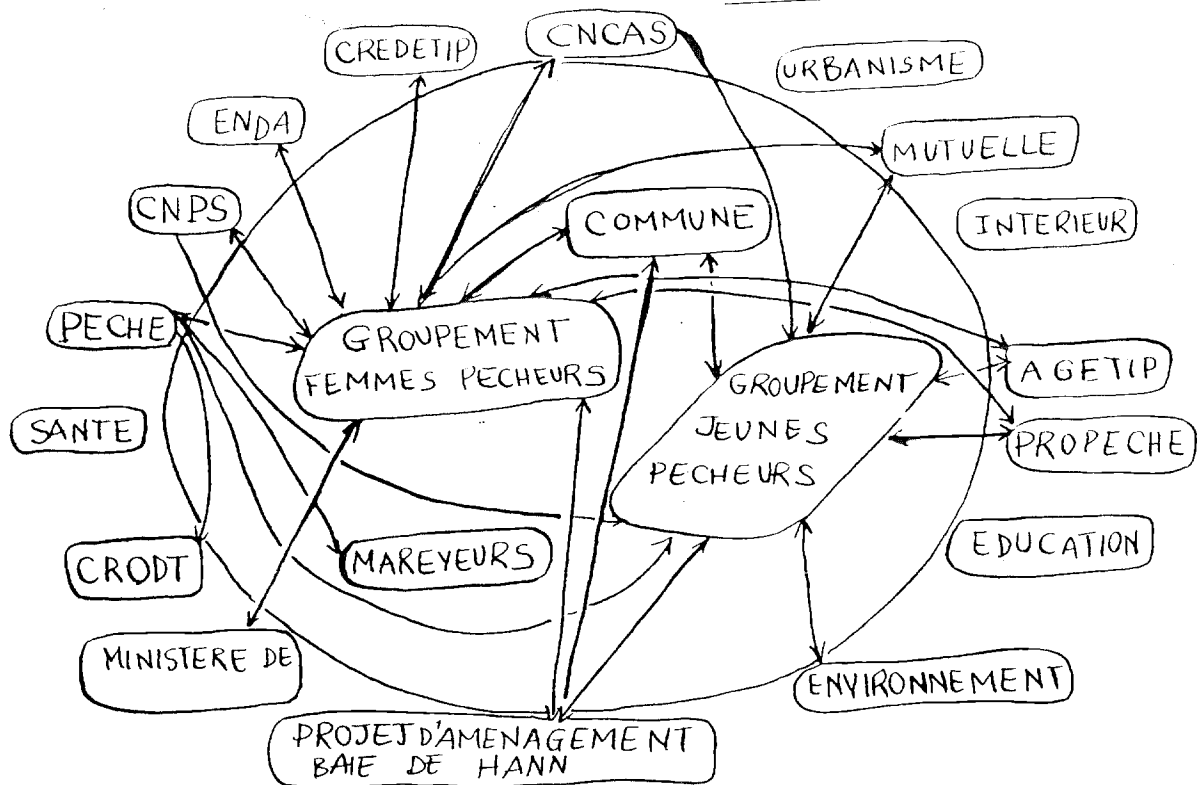 CNCAS
CREDETIP
URBANISME
ENDA
MUTUELLE
CNPS
COMMUNE
INTERIEUR
PECHE
GROUPEMENT
FEMMES PECHEURS
AGETIP
GROUPEMENT
JEUNES
PECHEURS
SANTE
PROPECHE
CRODT
MAREYEURS
EDUCATION
MINISTERE DE
ENVIRONNEMENT
PROJET D'AMENAGEMENT
BAIE DE HANN